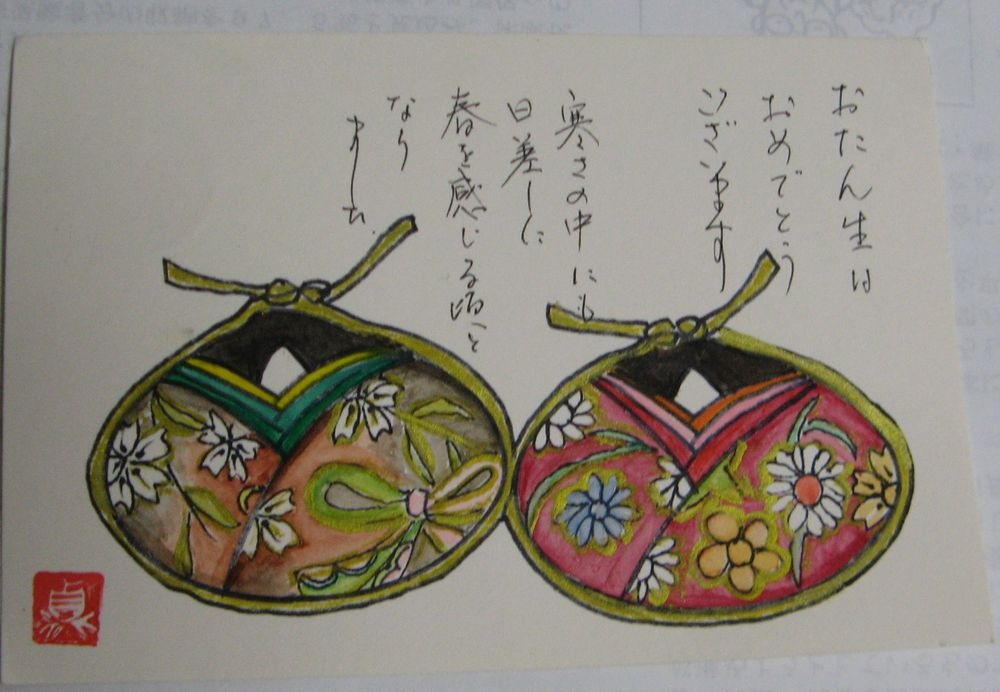 おたん生日
おめでとう
ございます
寒さの中にも
日差しに
春を感じる頃と
なり
ました